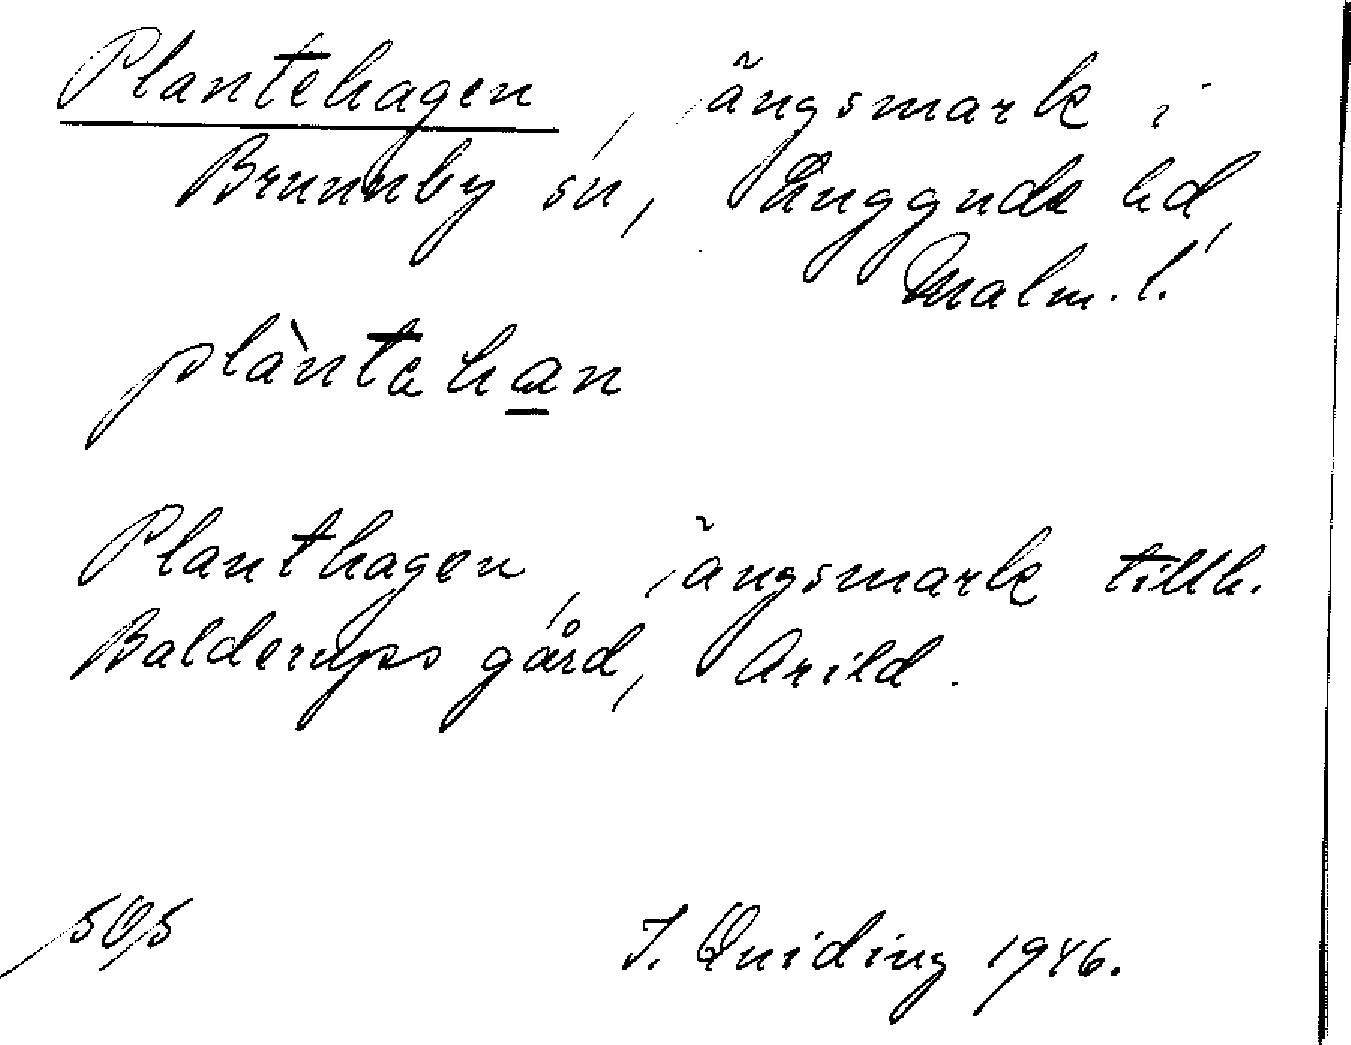 Plantehagen, ängsmark i
Brunnby sn, Luggude hd,
Malm. l.
plàntahan
Planthagen, ängsmark tillh.
Balderups gård, Arild.
505
I. Quiding 1946.